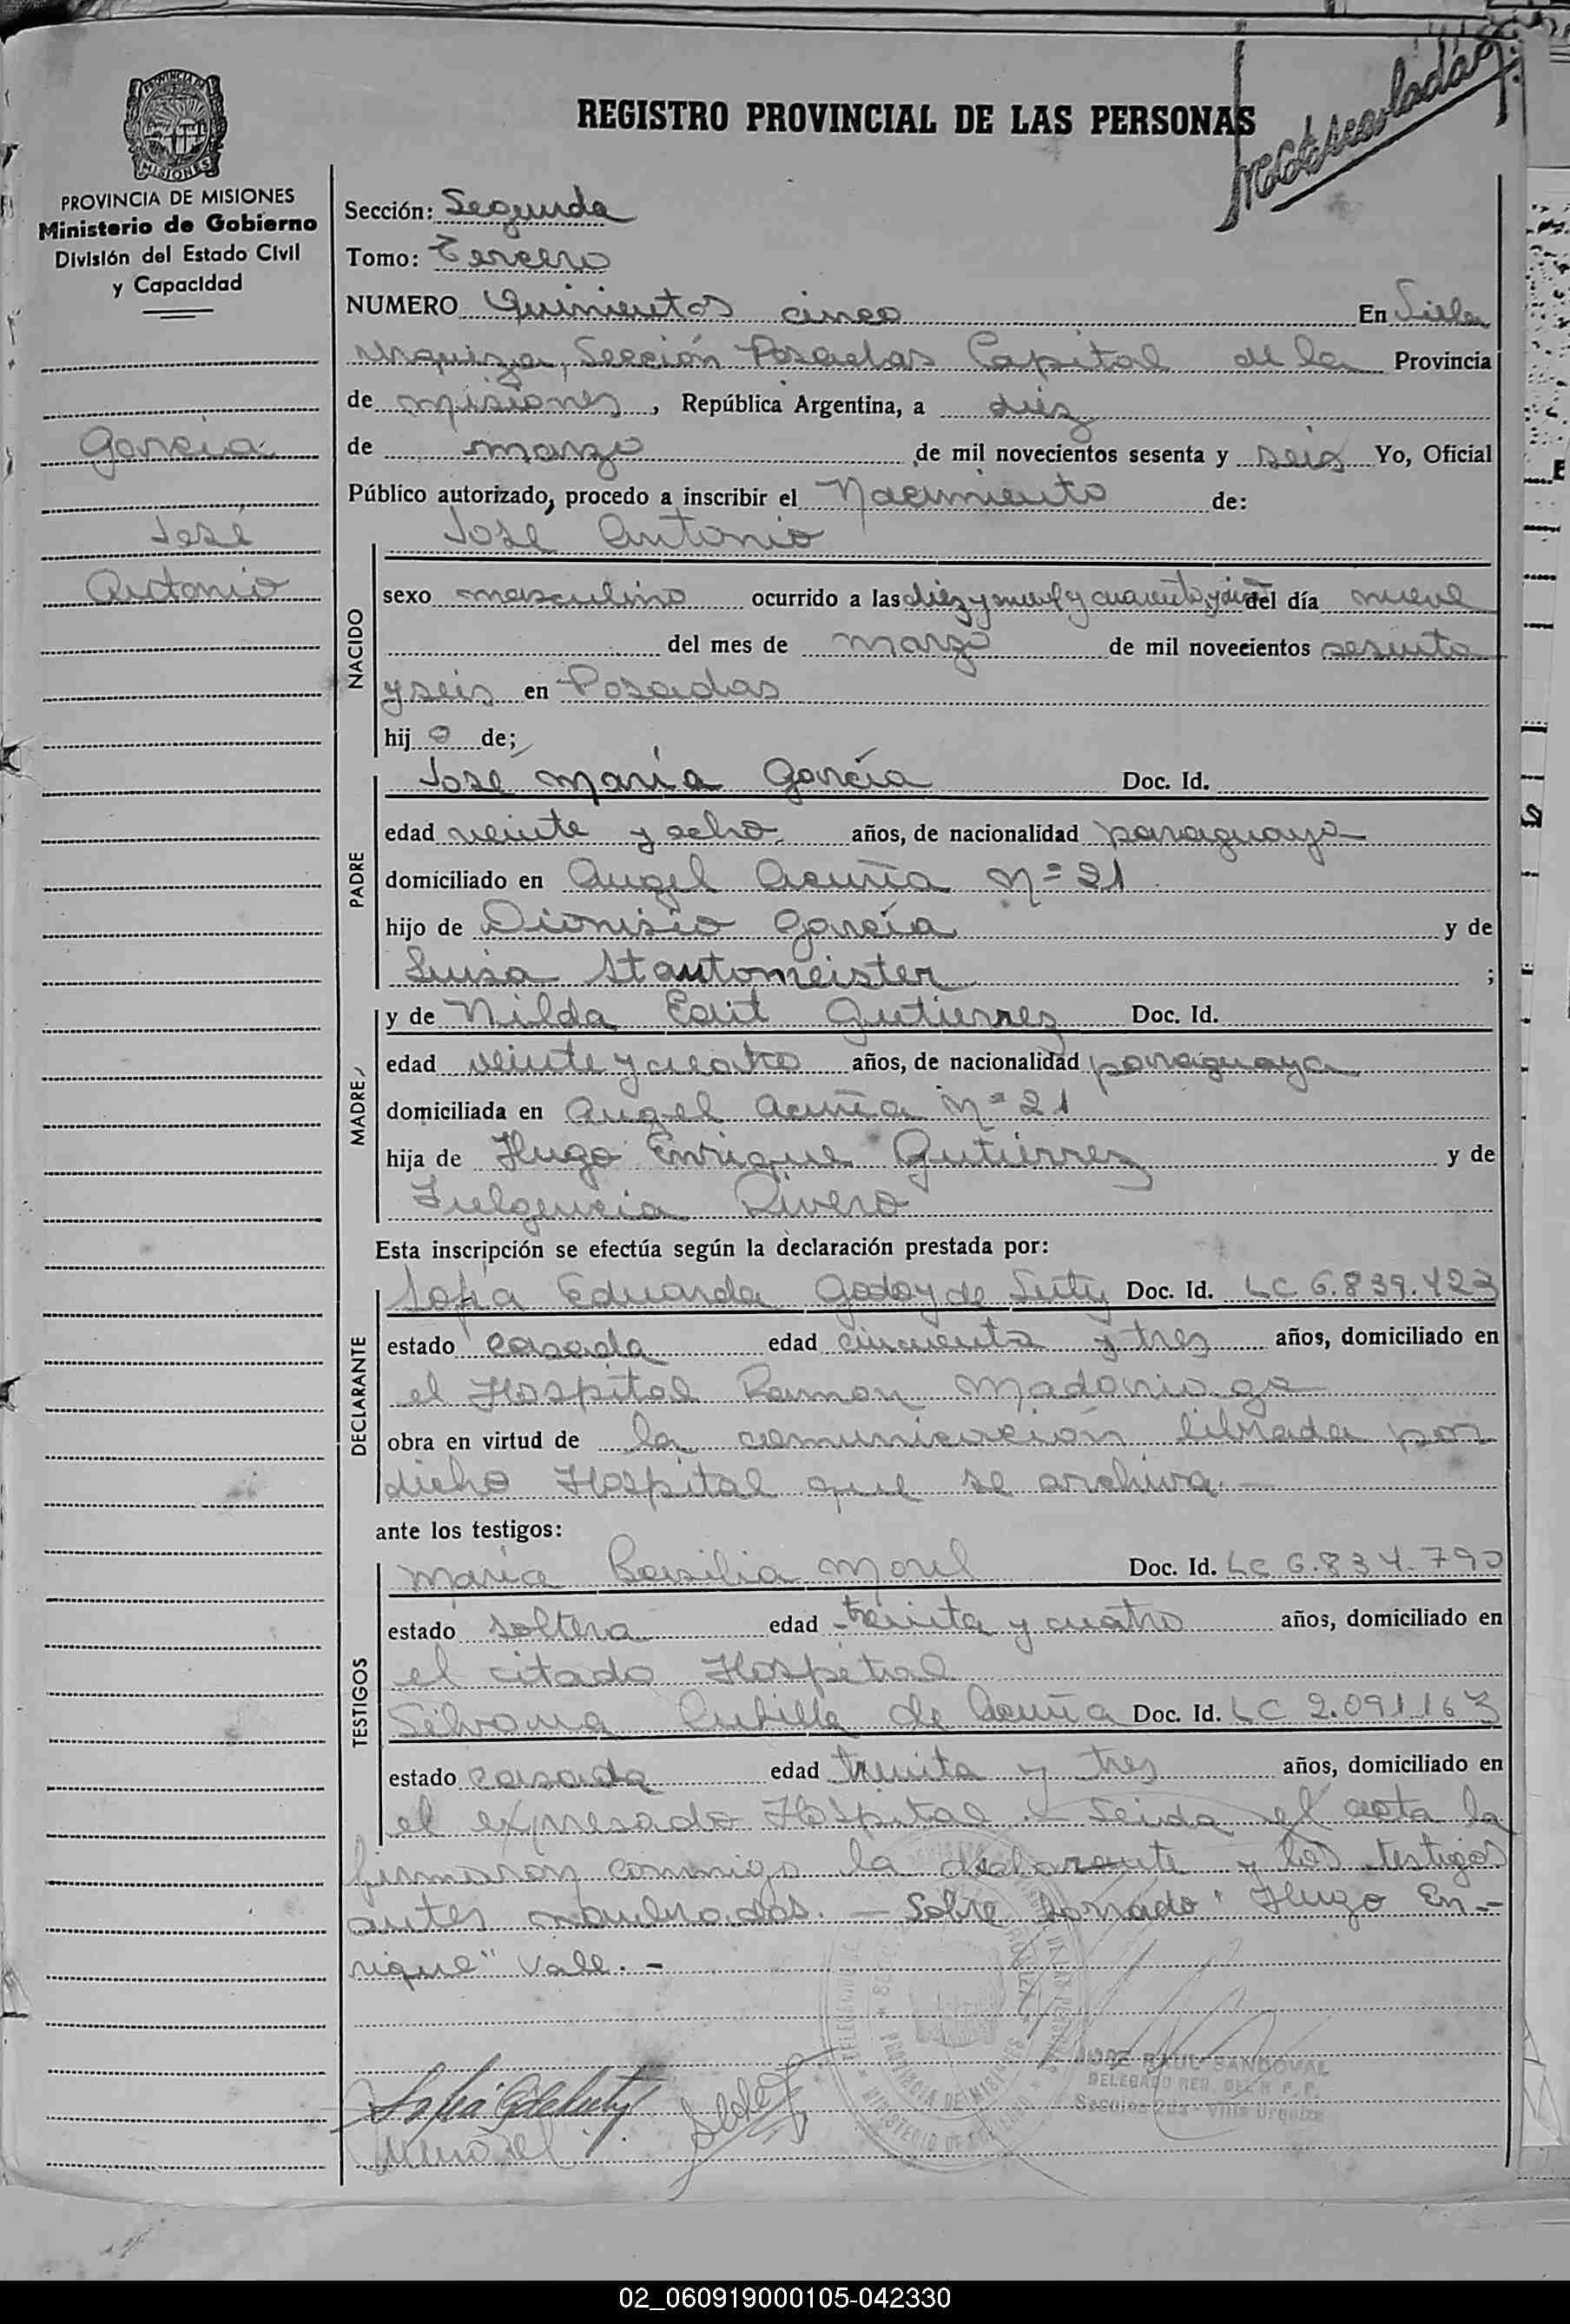 REGISTRO PROVINCIAL DE LAS PERSONAS
PROVINCIA DE MISIONES
Ministerio de Gobierno
División del Estado Civil
y Capacidad
García
José
Antonio
Sección: Segunda
Tomo: Tercero
NUMERO Quinientos cinco En Villa
Urquiza, Sección Posadas Capital de la Provincia
de misiones, República Argentina, a diez
de marzo de mil novecientos sesenta y seis Yo, Oficial
Público autorizado, procedo a inscribir el Nacimiento de:
José Antonio
NACIDO
sexo masculino ocurrido a las diez y nueve y cuarenta y del día nueve
del mes de marzo de mil novecientos sesenta
y seis en Posadas
hijo de;
PADRE
José maría García Doc. Id.
edad veinte y ocho años, de nacionalidad paraguaya
domiciliado en Angel Acuña Nº 21
hijo de Dionisio García y de
Luisa Stautomeister ;
MADRE
y de Nilda Edit Gutierrez Doc. Id.
edad veinte y cuatro años, de nacionalidad paraguaya
domiciliada en Angel Acuña Nº 21
hija de Hugo Enrique Gutierrez y de
Fulgencia Rivero
Esta inscripción se efectúa según la declaración prestada por:
DECLARANTE
Sofía Eduarda Godoy de Doc. Id. LC 6.839.423
estado casada edad cincuenta y tres años, domiciliado en
el Hospital Ramon Madariaga
obra en virtud de la comunicación librada por
dicho Hospital que se archiva.-
ante los testigos:
TESTIGOS
María Basilia Morel Doc. Id. LC 6.834.790
estado soltera edad treinta y cuatro años, domiciliado en
el citado Hospital
Silvana de Acuña Doc. Id. LC 2.091.163
estado casada edad treinta y tres años, domiciliado en
el expresado Hospital.- Leida el acta la
firmaron conmigo la declarante y los testigos
antes nombrados.- Sobre borrado "Hugo En-
rique" Vale.-
JORGE RAUL SANDOVAL
DELEGADO REG. DEL R. P. P.
Sección 2da - Villa Urquiza
PROVINCIA DE MISIONES
MINISTERIO DE GOBIERNO
02_060919000105-042330